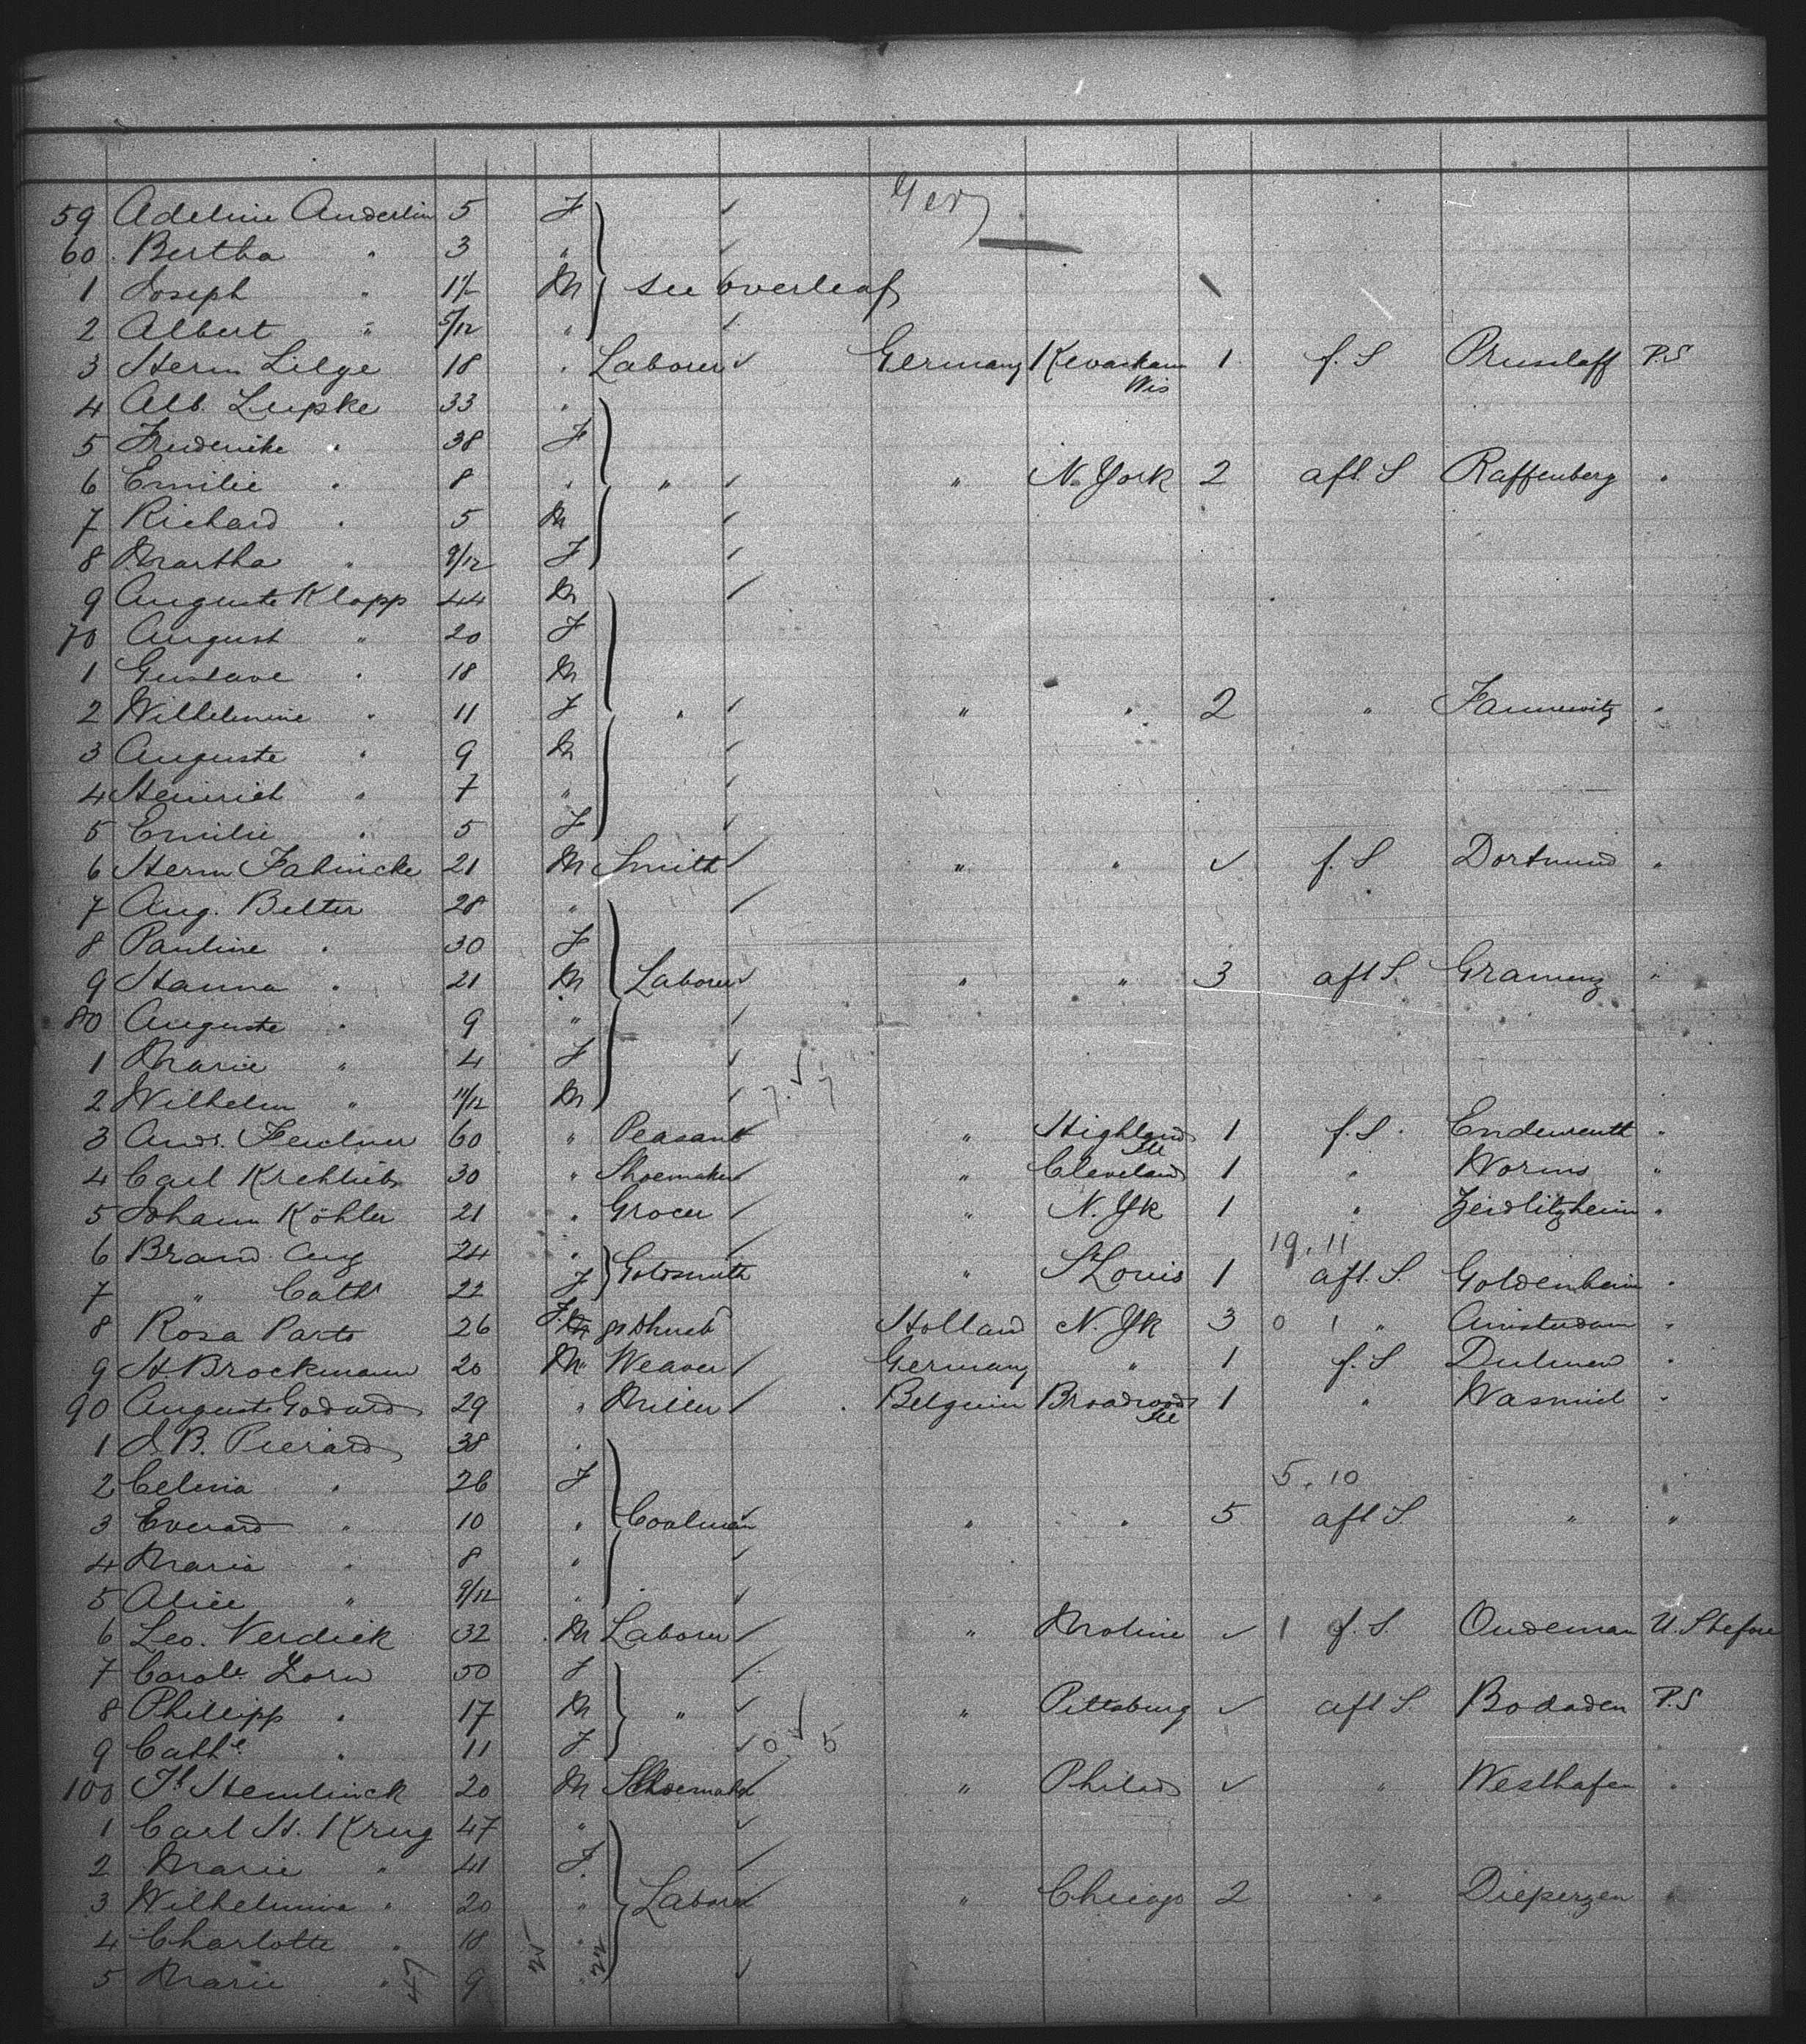 Ger
59 Adeline Anderlin 5 F
60 Bertha " 3 "
1 Joseph " 1½ M see overleaf
2 Albert " 5/12 "
3 Herm Lilge 18 " Laborer Germany Kewaskum Wis 1 f. S Prusslaff P.S
4 Alb. Lupke 33 "
5 Frederike " 38 F
6 Emilie " 8 " " " N. York 2 aft. S Raffenberg "
7 Richard " 5 M
8 Martha " 9/12 F
9 Auguste Klopp 44 M
70 August " 20 F
1 Gustave " 18 M
2 Wilhelmine " 11 F " " " 2 " Fannewitz "
3 Auguste " 9 M
4 Heinrich " 7 "
5 Emilie " 5 F
6 Herm Fabincke 21 M Smith " " ✓ f. S Dortmund "
7 Aug. Belter 28 "
8 Pauline " 30 F
9 Hanna " 21 M Laborer " " 3 aft S. Gramenz "
80 Auguste " 9 "
1 Marie " 4 F
2 Wilhelm " 11/12 M 7. ✓ 7
3 Andr. Ferdner 60 " Peasant " Highland Ill 1 f. S. Endereuth "
4 Carl Krehlieb 30 " Shoemaker " Cleveland 1 " Worms "
5 Johann Köhler 21 " Grocer " N. Yk 1 " Zeidlitzheim "
6 Brand Aug 24 " 19. 11
7 " Cath 22 F Goldsmith " St Louis 1 aft. S. Goldenheim "
8 Rosa Parts 26 F. Holland N. Yk 3 0 1 " Amsterdam "
9 H. Brockmann 20 M Weaver Germany " 1 f. S Dulmen "
90 Auguste Godard 29 " Miller Belguim Broadwood Ill 1 " Wasmiel "
1 J. B. Pierard 38 "
2 Celina " 26 F 5. 10
3 Everard " 10 " Coalman " " 5 aft S. " "
4 Maria " 8 "
5 Alice " 9/12 "
6 Leo. Verdick 32 M Laborer " Moline ✓ 1 f. S. Oudeman U. S before
7 Carole. Zorn 50 F
8 Phillipp " 17 M " " Pittsburg ✓ aft S. Bodaden P.S
9 Cathe " 11 F 0 ✓ 5
100 Th Hemlinck 20 M Shoemaker " Philad ✓ " Westhafen "
1 Carl H. Krug 47 "
2 Marie " 41 F.
3 Wilhelmina " 20 " Laborer " Chicago 2 " Dieperzen "
4 Charlotte " 18 "
5 Marie " 9 "
47 25 22